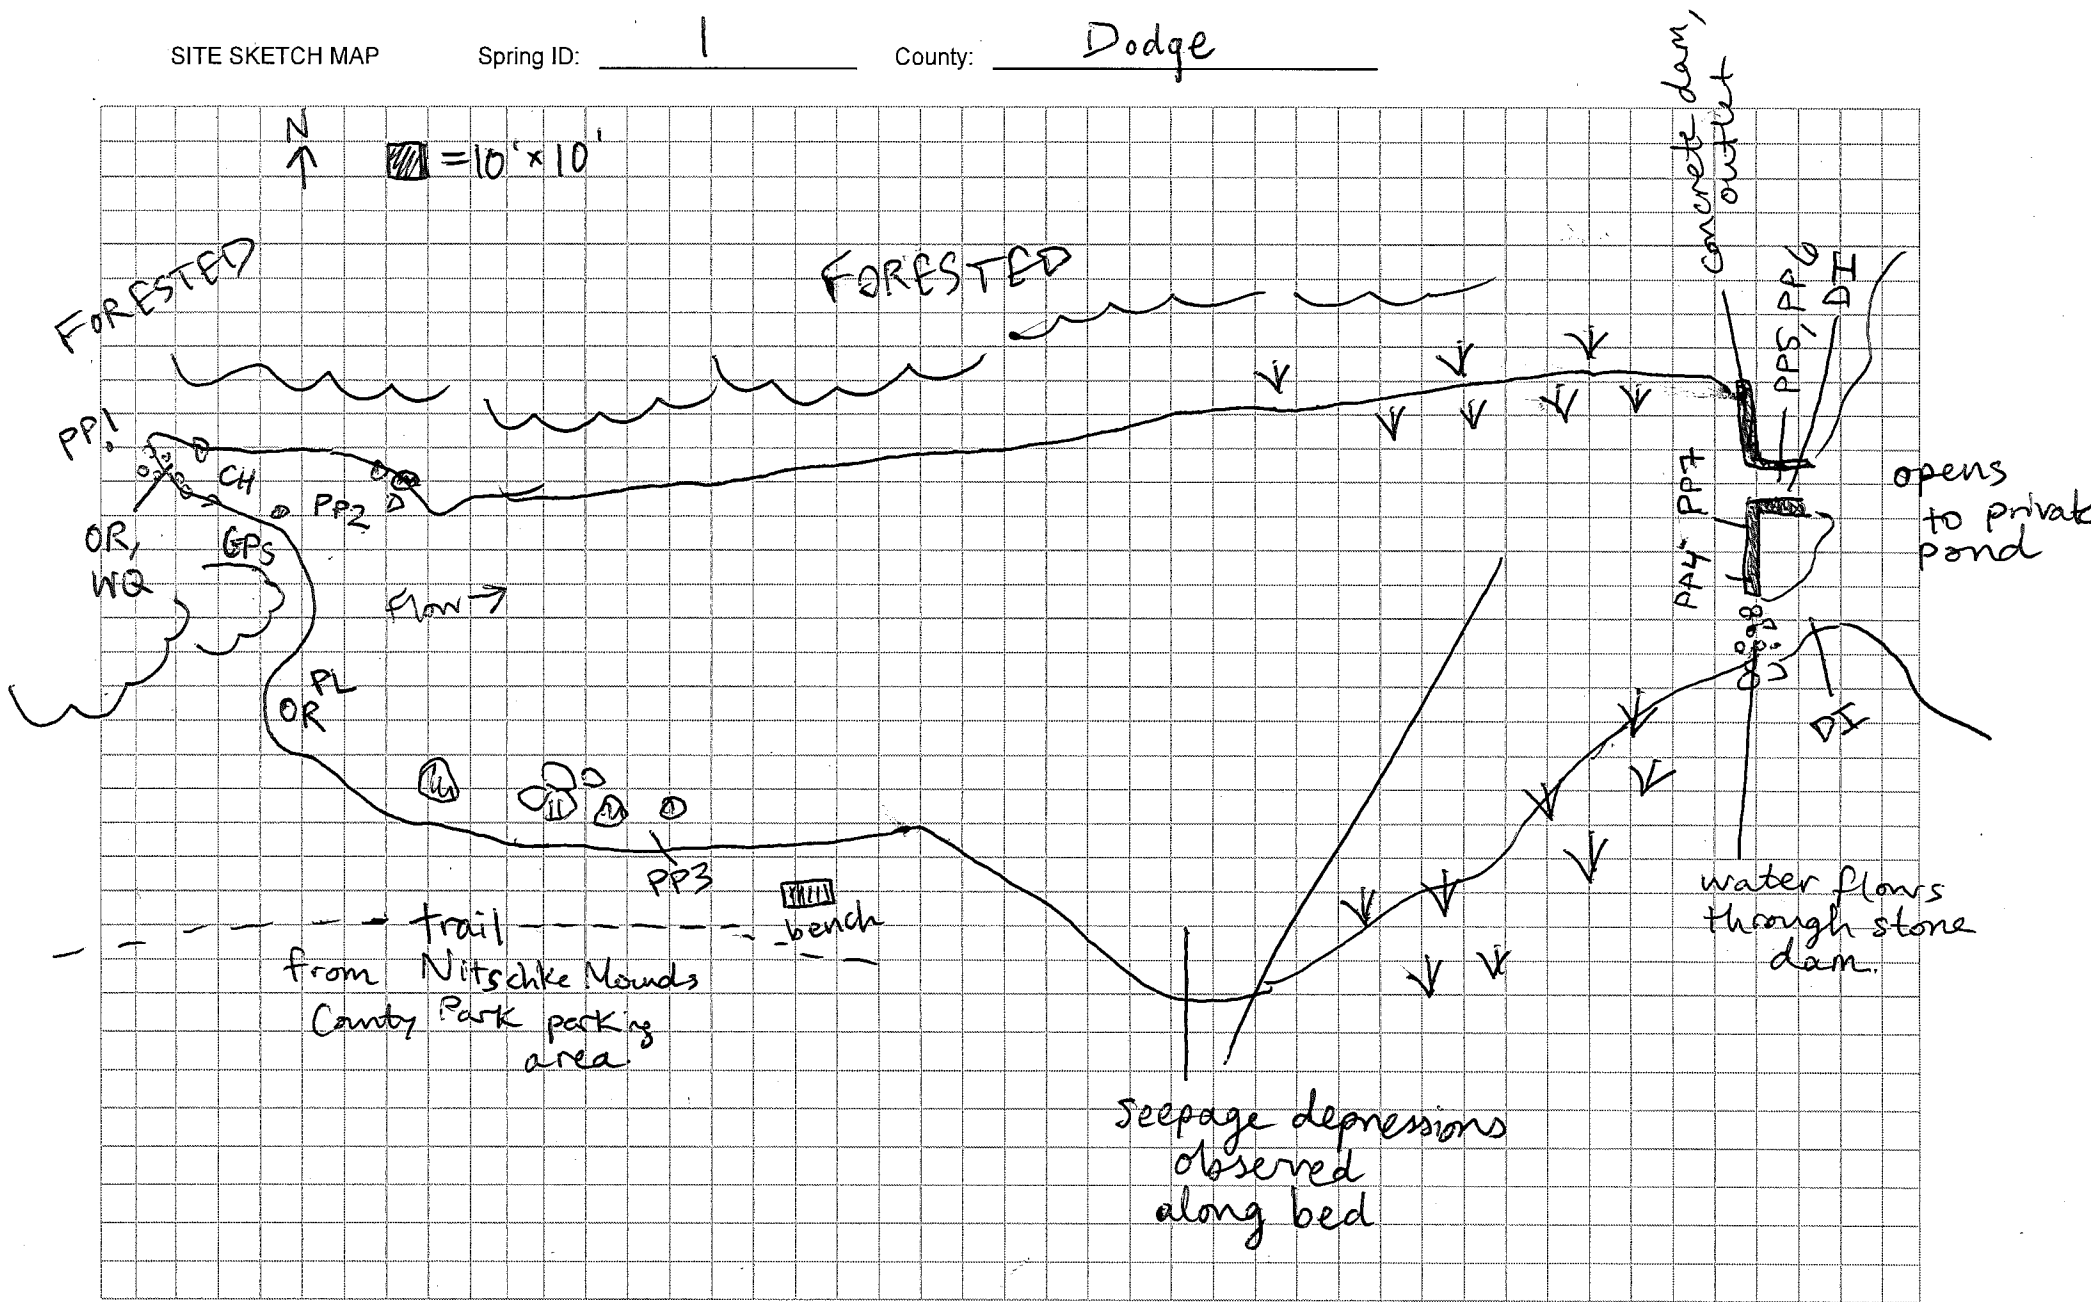 SITE SKETCH MAP Spring ID: 1 County: Dodge
N
= 10' x 10'
concrete dam,
outlet
FORESTED
FORESTED
PP5, PP6
DI
PP1
CH
PP2
OR,
WQ
GPS
Flow →
PP7
PP4
opens
to private
pond
PL
OR
DI
PP3
bench
trail
from Nitschke Mounds
County Park parking
area
water flows
through stone
dam.
Seepage depressions
observed
along bed